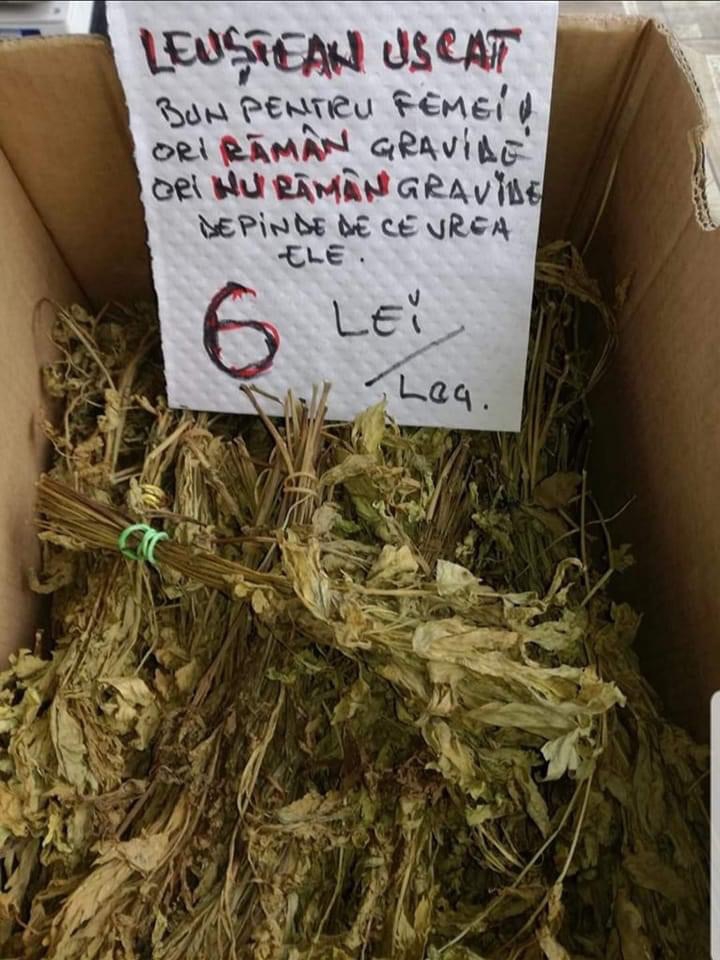 LEUȘTEAN USCAT
BUN PENTRU FEMEI!
ORI RĂMÂN GRAVIDE
ORI NU RĂMÂN GRAVIDE
DEPINDE DE CE VREA
ELE.
6 LEI
/ Leg.